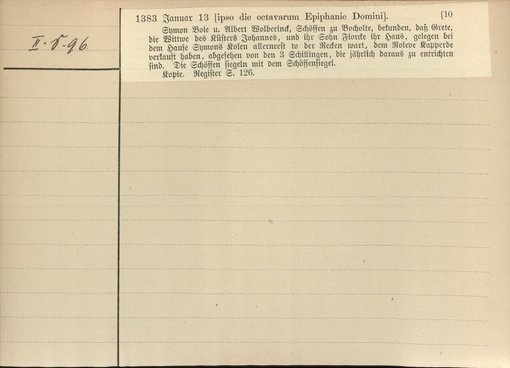 II-8-96
1383 Januar 13 [ipso die octavarum Epiphanie Domini]. [10
Symon Bole u. Albert Wolberinck, Schöffen zu Bocholte, bekunden, daß Grete,
die Witwe des Küsters Johannes, und ihr Sohn Florcke ihr Haus, gelegen bei
dem Hause Symons Kolen allernest to der Recken wart, dem Roleve Kapperde
verkauft haben, abgesehen von den 3 Schillingen, die jährlich daraus zu entrichten
sind. Die Schöffen siegeln mit dem Schöffensiegel.
Kopie. Register S. 126.